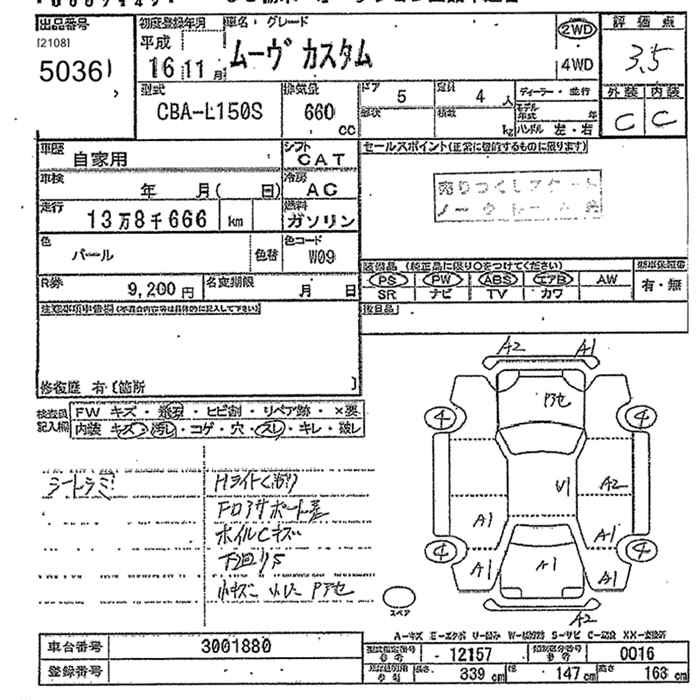 出品番号
[2108]
5036
初度登録年月
車名・グレード
平成
16 11月
ムーヴ カスタム
2WD
4WD
評価点
3.5
外装 内装
C C
型式
CBA-L150S
排気量
660
CC
ドア
5
定員
4 人
積載
kg
ディーラー・並行
モデル年式 年
ハンドル 左・右
車歴
自家用
シフト
CAT
車検
年 月( 日)
冷房
AC
走行
13万8千666 km
燃料
ガソリン
色
パール
色替
色コード
W09
R券
9,200円
名変期限
月 日
セールスポイント(正常に登録するものに限ります)
売りつくしマーケット
ノークレーム
装備品 (純正品に限り○をつけてください)
PS PW ABS エアB AW
SR ナビ TV カワ
有・無
注意事項申告欄
修復歴 有〔箇所 〕
検査員記入欄
FW キズ・亀裂・ヒビ割・リペア跡・×要
内装 キズ・汚レ・コゲ・穴・スレ・キレ・破レ
シートシミ
Hライトくもり
Fロアサポート
ホイルCキズ
下廻りS
A2 A1
Pアセ
4 4
U1 A2
A1 A1
4 4
A1 A1 A1
A2
スペア
車台番号
3001880
登録番号
型式指定番号
12157
類別区分番号
0016
長さ 339 cm
幅 147 cm
高さ 163 cm